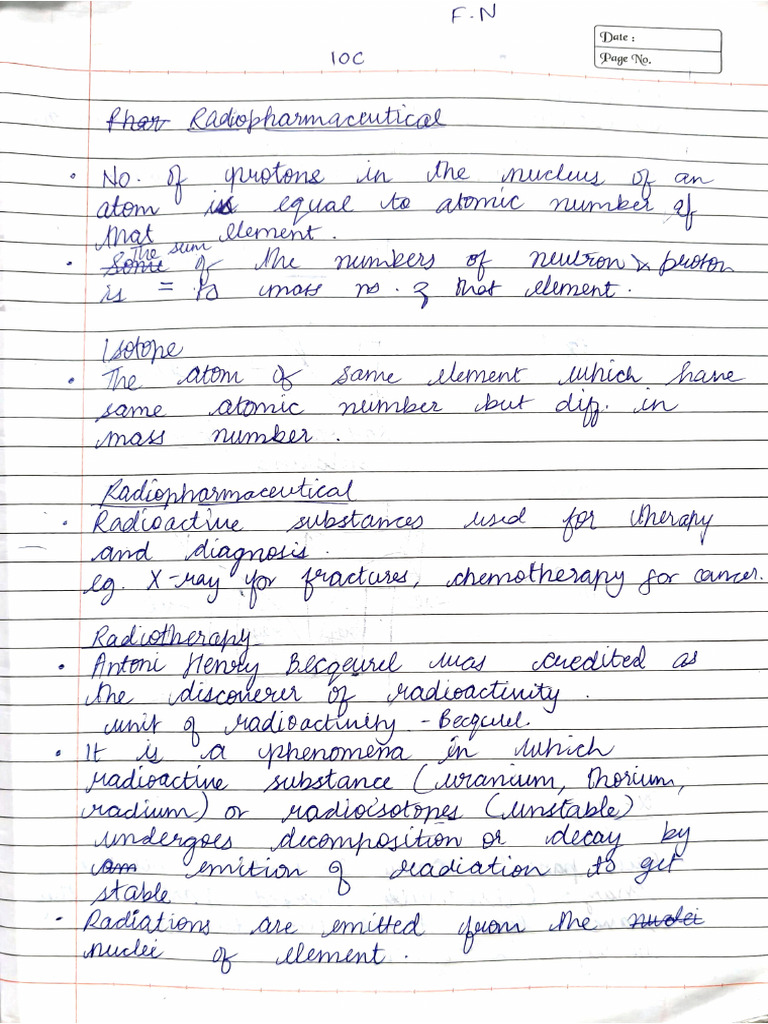 F.N
Date :
Page No.
IOC
Phar Radiopharmaceutical
• No. of protons in the nucleus of an
atom is equal to atomic number of
that element.
• Some The sum of the numbers of neutron & proton
is = to mass no. of that element.
Isotope
• The atom of same element which have
same atomic number but diff. in
mass number.
Radiopharmaceutical
• Radioactive substances used for therapy
and diagnosis.
eg. X-ray for fractures, chemotherapy for cancer.
Radiotherapy
• Antoni Henry Becqeurel was credited as
the discoverer of radioactivity.
unit of radioactivity - Becqurel.
• It is a phenomena in which
radioactive substance (uranium, thorium,
radium) or radioisotopes (unstable)
undergoes decomposition or decay by
am emition of radiation to get
stable.
• Radiations are emitted from the nuclei
nuclei of element.